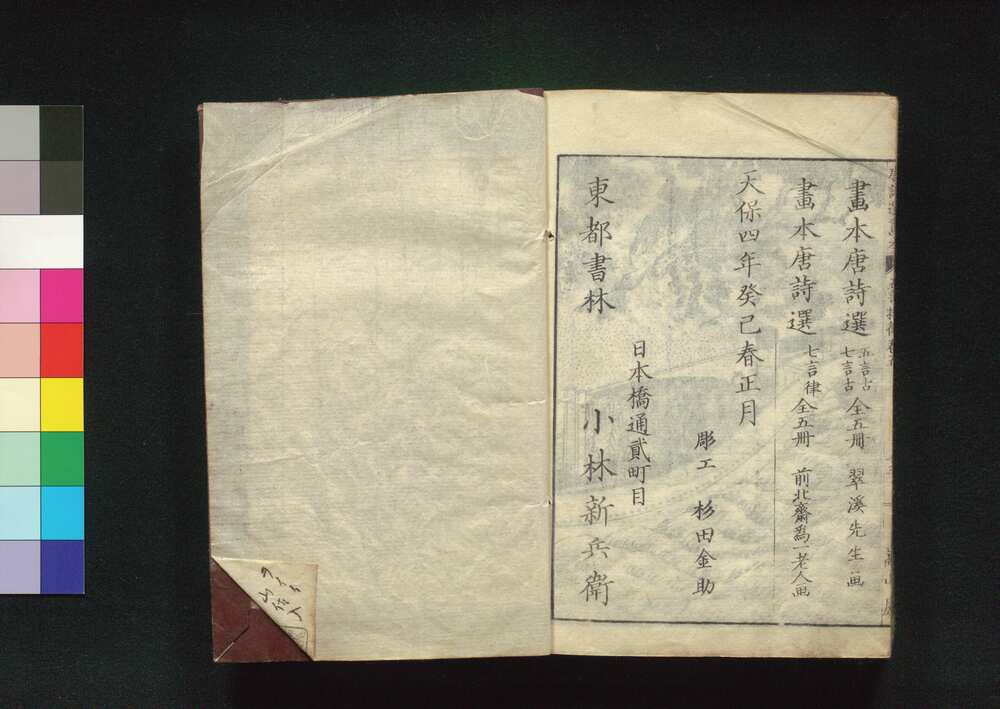 畫本唐詩選 五言古 七言古 全五冊 翠溪先生画
畫本唐詩選 七言律 全五冊 前北齋爲一老人画
天保四年癸巳春正月
彫工 杉田金助
日本橋通貳町目
東都書林 小林新兵衛